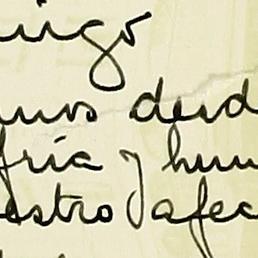 ingo
mos desd
fria y hum
estro afec